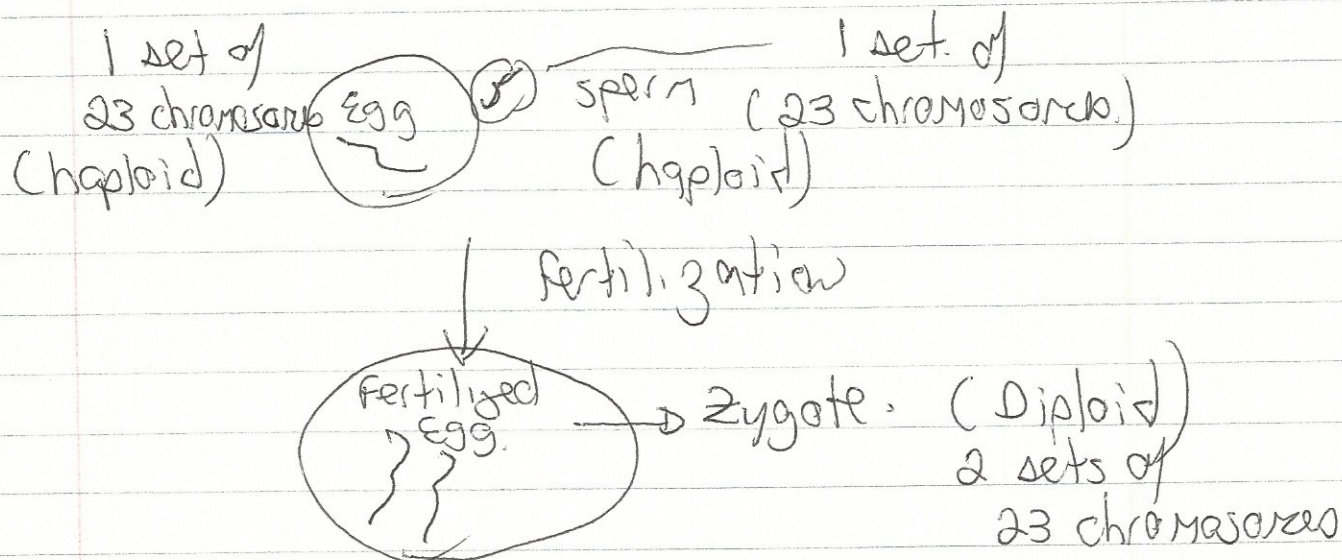 1 set of
23 chromosomes
(haploid)
Egg
sperm
(haploid)
1 set of
(23 chromosomes)
fertilization
Fertilized
Egg.
Zygote. (Diploid)
2 sets of
23 chromosomes